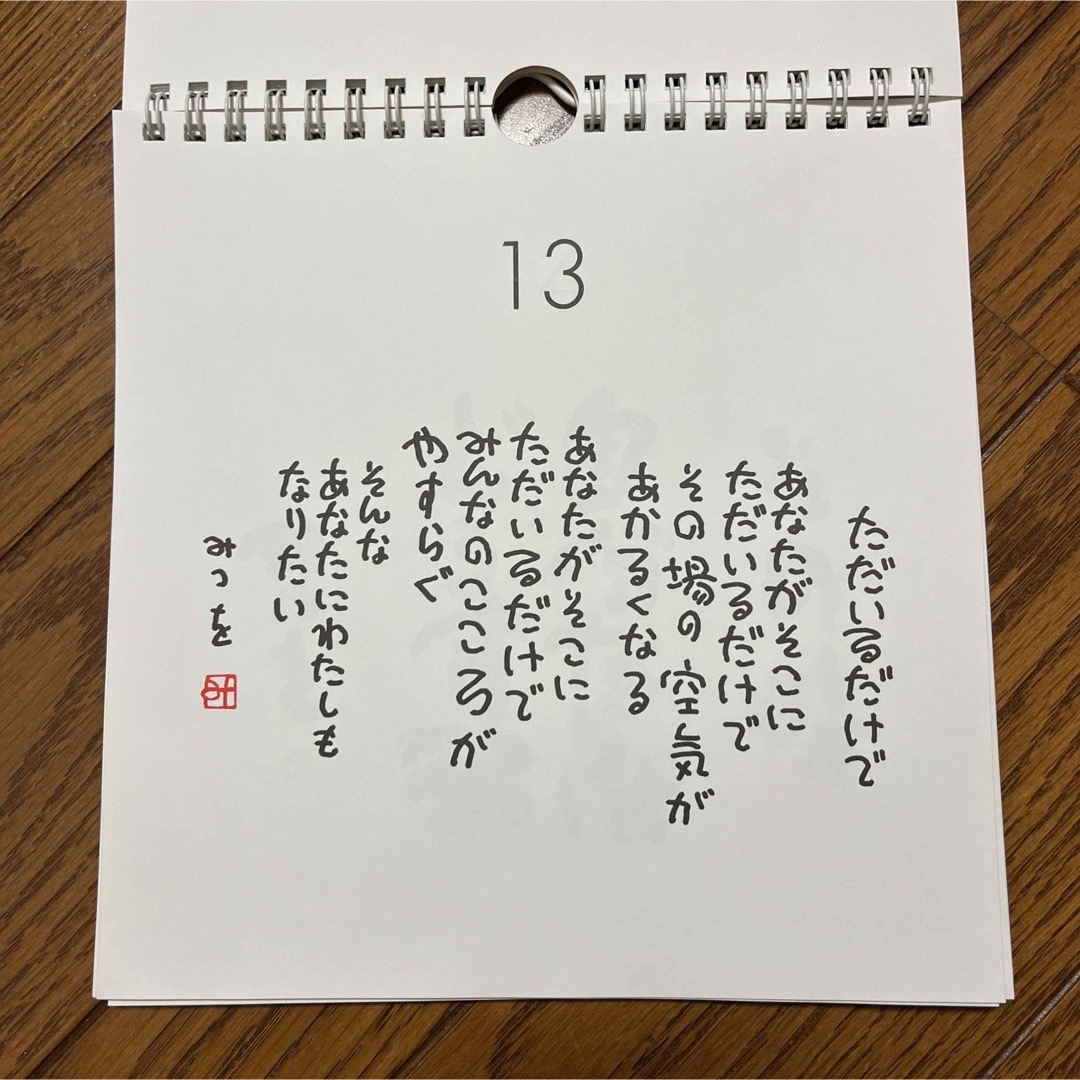 13
ただいるだけで
あなたがそこに
ただいるだけで
その場の空気が
あかるくなる
あなたがそこに
ただいるだけで
みんなのこころが
やすらぐ
そんな
あなたにわたしも
なりたい
みつを